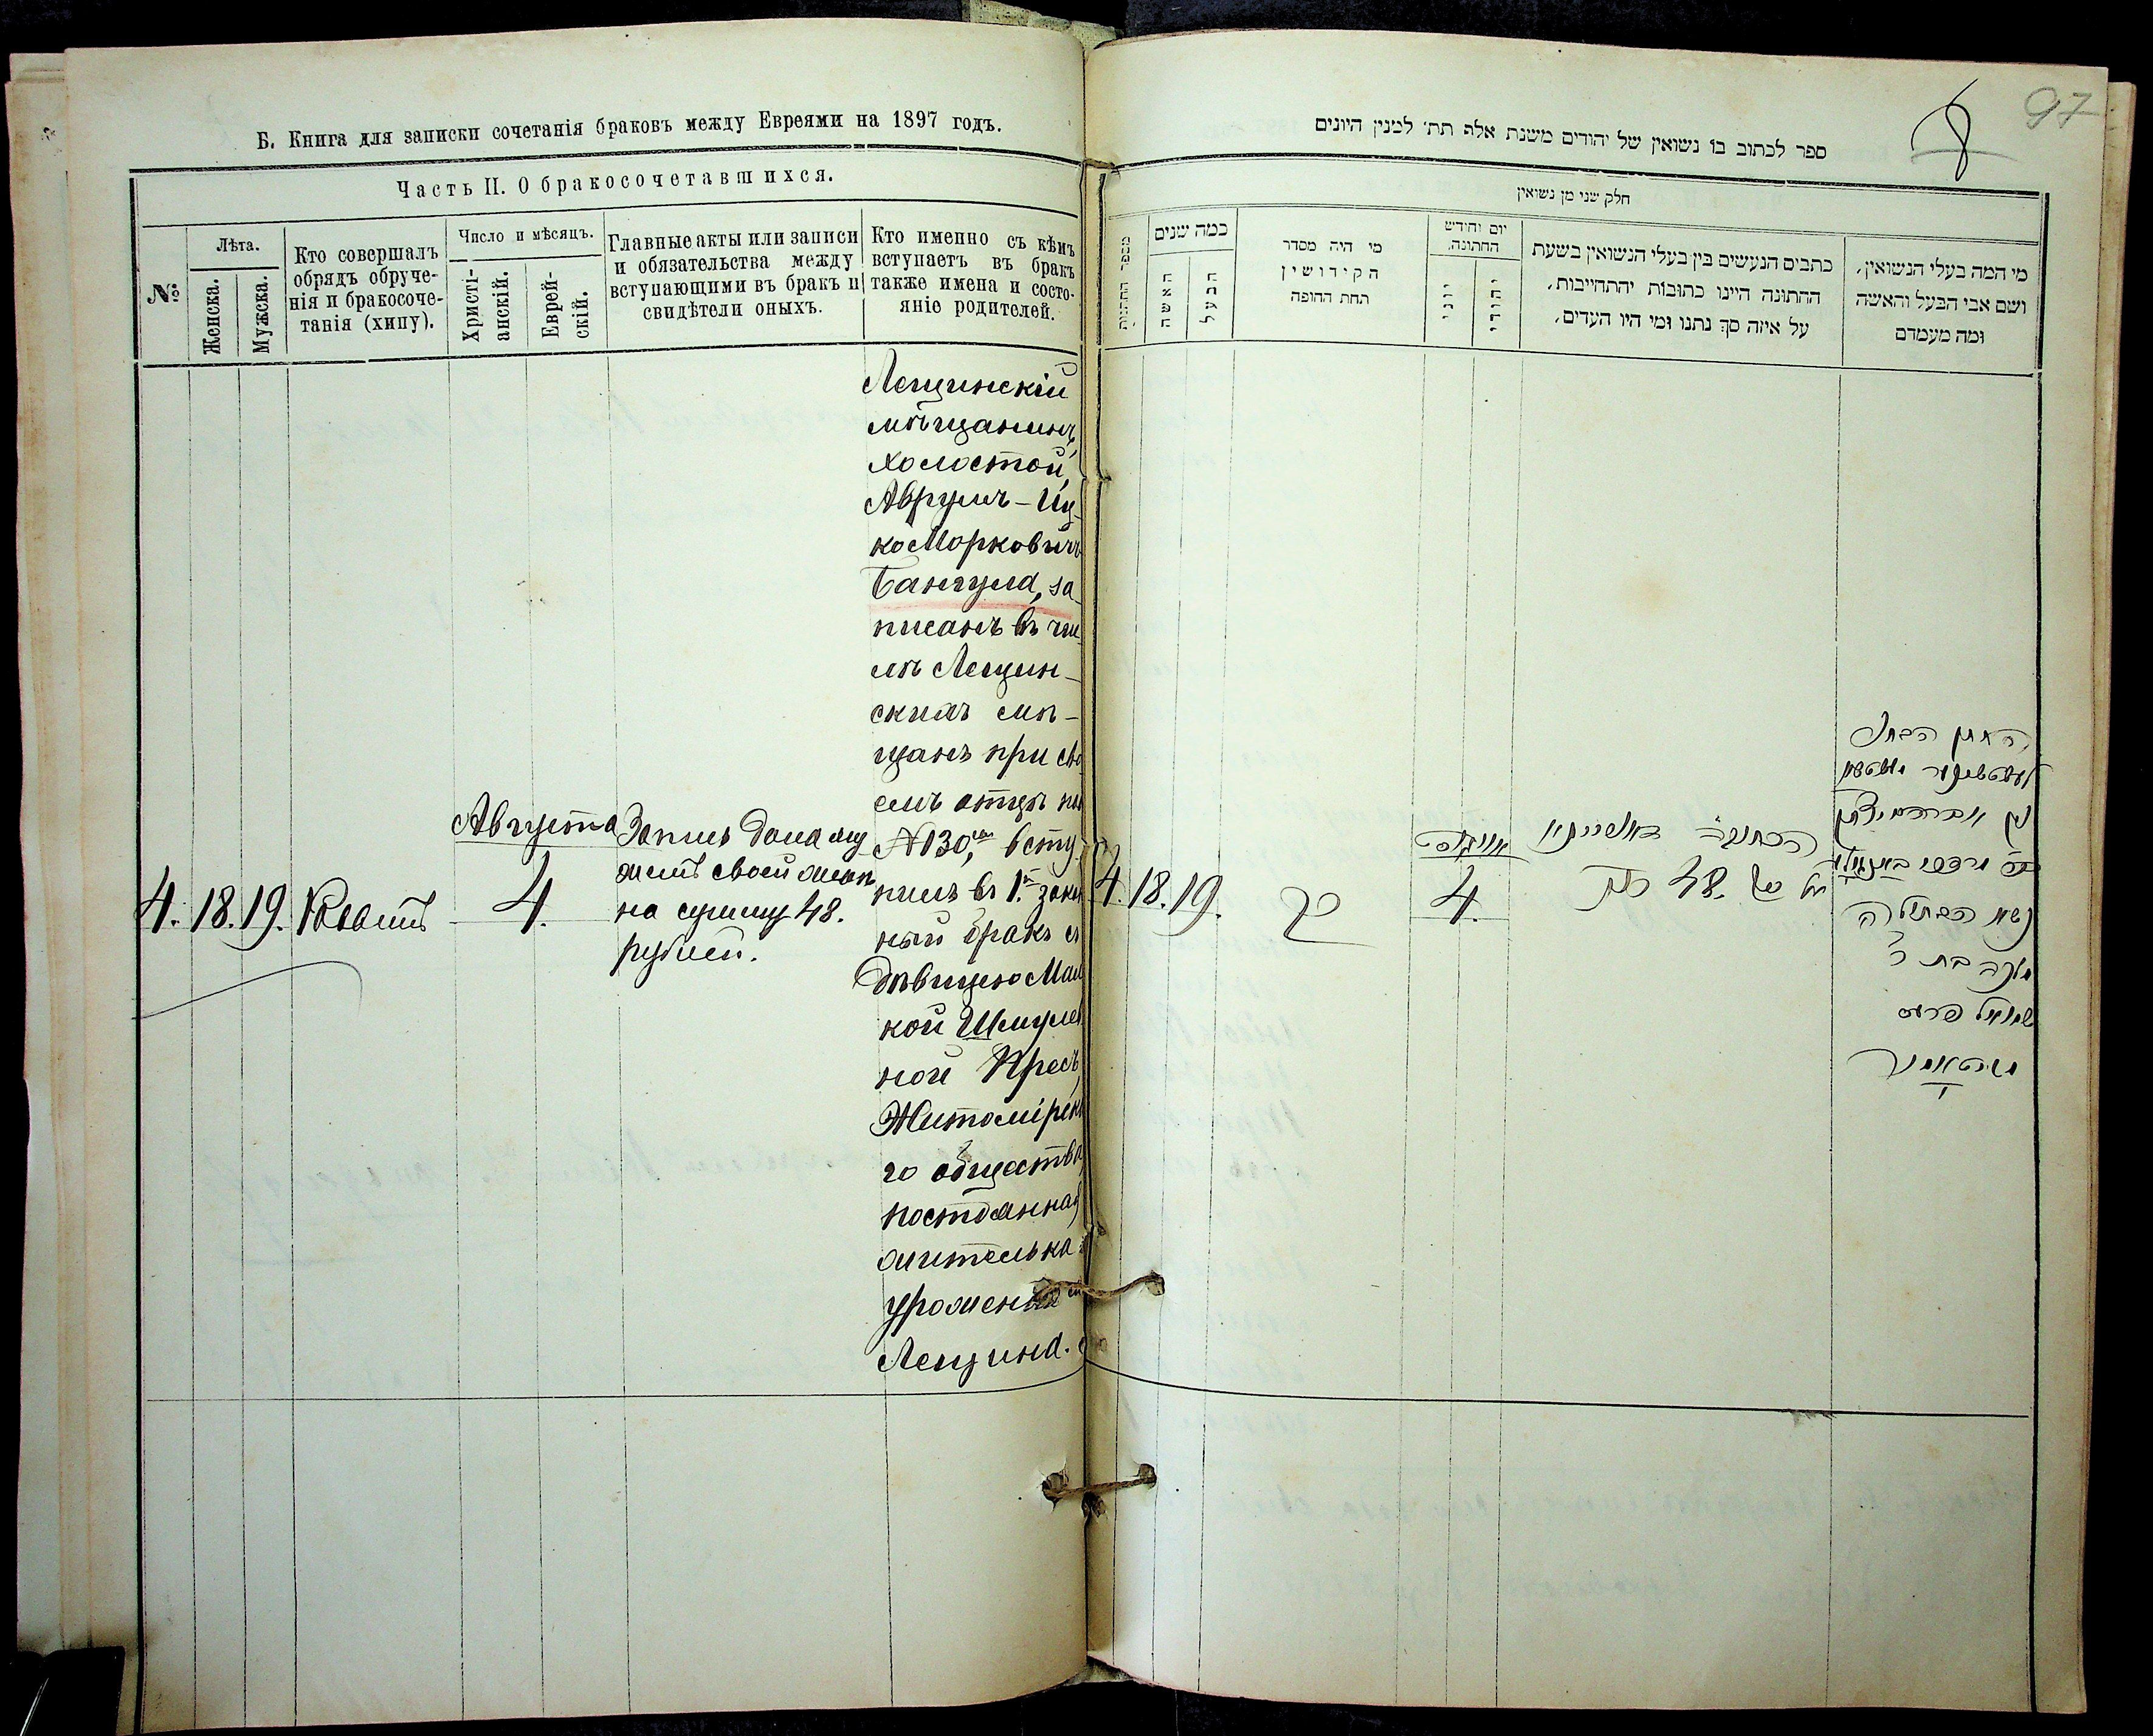 Б. Книга для записки сочетанія браковъ между Евреями на 1897 годъ.
Часть II. О бракосочетавшихся.
№
Лѣта.
Женска.
Мужска.
Кто совершалъ
обрядъ обруче-
нія и бракосоче-
танія (хипу).
Число и мѣсяцъ.
Христі-
анскій.
Еврей-
скій.
Главные акты или записи
и обязательства между
вступающими въ бракъ и
свидѣтели оныхъ.
Кто именно съ кѣмъ
вступаетъ въ бракъ
также имена и состо-
яніе родителей.
4.
18.
19.
Августа
4.
Запись дана му
жемъ своей женѣ
на сумму 48.
рублей.
Лещинскій
мѣщанинъ,
холостой,
Аврумъ-Иц-
ко Морковичъ
Бангула, за-
писанъ въ чи
лѣ Лещин-
скихъ мѣ-
щанъ при сво
емъ отцѣ по
№130, всту
пилъ въ 1й зако
ный бракъ съ
дѣвицею Мал
кой Шмулев
ной Пресъ,
Житомірска
го общества,
постоянная
жителька и
уроженка м
Лещина.
97
8
ספר לכתוב בו נשואין של יהודים משנת אלף תת׳ למנין היונים
חלק שני מן נשואין
מספר החתונות
כמה שנים
האשה
הבעל
מי היה מסדר
הקידושין
תחת החופה
יום וחודש
החתונה.
יוני
יהודי
כתבים הנעשים בין בעלי הנשואין בשעת
החתונה היינו כתובות יהתחייבות,
על איזה סך נתנו ומי היו העדים,
מי המה בעלי הנשואין,
ושם אבי הבעל והאשה
ומה מעמדם
4.
18.
19.
אויגוסט
4.
48
נשא הבתולה
מלכה בת ר׳
שמואל פרעס